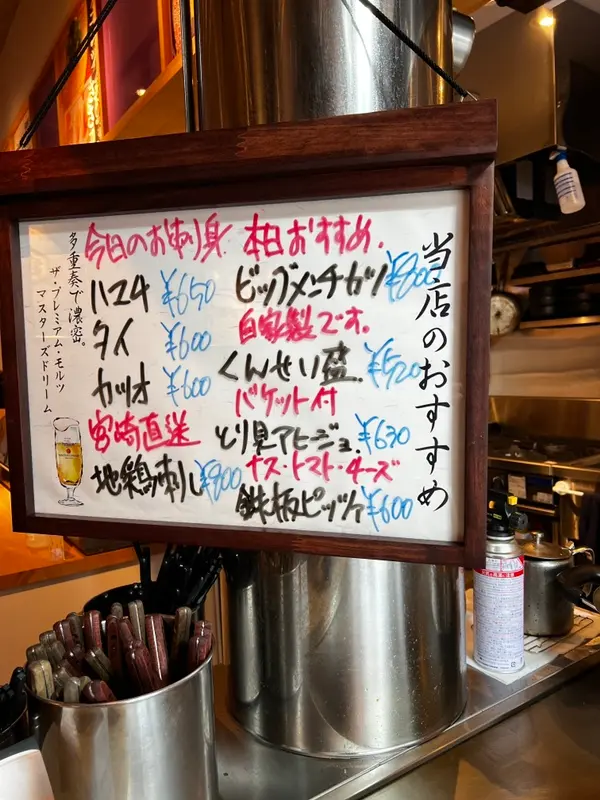 当店のおすすめ
多重奏で濃密。
ザ・プレミアム・モルツ
マスターズドリーム
今日のお刺身
ハマチ ¥650
タイ ¥600
カツオ ¥600
宮崎直送
地鶏刺し
本日おすすめ.
ビッグメンチカツ ¥800
自家製です。
くんせい盛. ¥520
バケット付
アヒージョ. ¥630
ナス・トマト・チーズ
鉄板ピッツァ ¥600